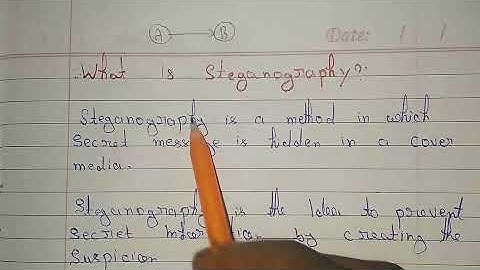 A B
Date: / /
What is Steganography?
Steganography is a method in which
Secret message is hidden in a cover
media.
Steganography is the Idea to prevent
Secret by creating the
Suspicion